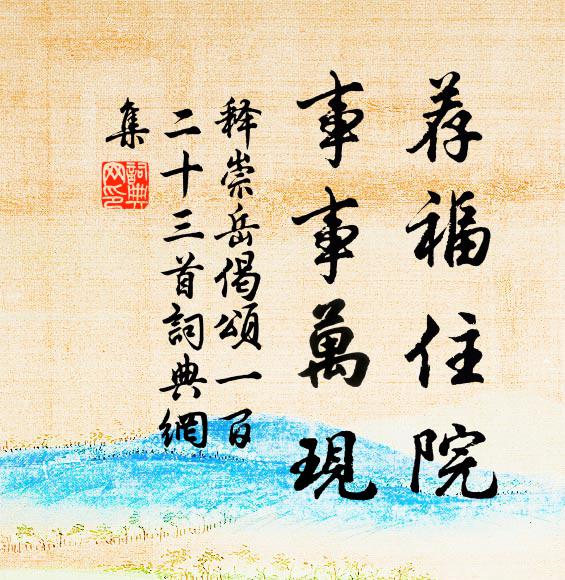 荐福住院
事事萬現
释崇岳偈頌一百
二十三首詞典網
集
詞典網印